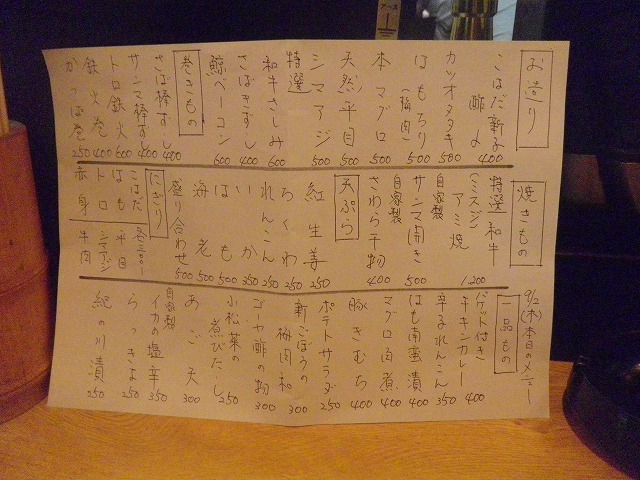 9/2(木)本日のメニュー
お造り
こはだ新子酢〆 400
カツオタタキ 500
はもちり(梅肉) 500
本マグロ 500
天然平目 500
シマアジ 500
特選和牛さしみ 600
さばきずし 400
鯨ベーコン 600
巻きもの
さば棒すし 400
サンマ棒すし 400
トロ鉄火 600
鉄火巻 400
かっぱ巻 250
焼きもの
特選和牛(ミスジ)アミ焼 1200
自家製サンマ開き 500
自家製さわら干物 400
天ぷら
紅生姜 250
ちくわ 250
れんこん 250
いか 350
はも 500
海老 500
盛り合わせ 500
にぎり
こはだ
はも 平目
トロ シマアジ
赤身 牛肉
一品もの
バゲット付きチキンカレー 400
辛子れんこん 350
はも南蛮漬 400
マグロ角煮 400
豚きむち 400
ポテトサラダ 250
新ごぼうの梅肉和 300
ゴーヤ酢の物 300
小松菜の煮びたし 250
あご天 300
自家製イカの塩辛 350
らっきょ 250
紀の川漬 250
アース